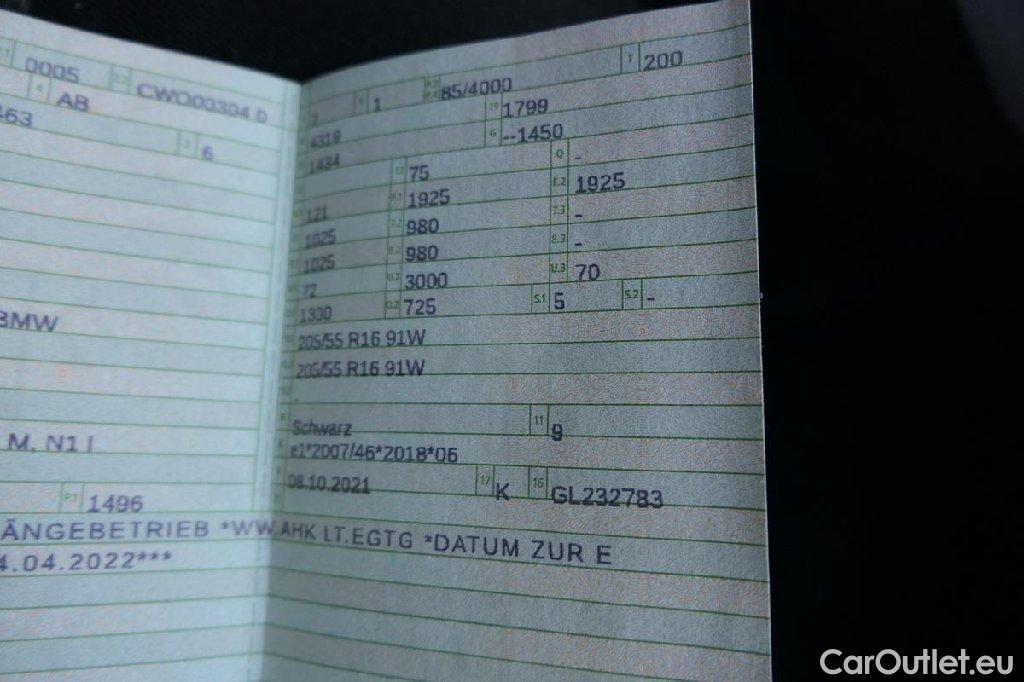 0005 CWO00304 0
AB
463
3 6
BMW
M, N1 I
P.3 1496
1 85/4000 T 200
4319 19 1799
1434 G --1450
75 Q -
121 1925 F.2 1925
1025 7.2 980 7.3 -
1025 8.2 980 8.3 -
72 U.2 3000 U.3 70
1300 O.2 725 S.1 5 S.2 -
205/55 R16 91W
205/55 R16 91W
-
Schwarz 11 9
e1*2007/46*2018*06
08.10.2021 17 K 16 GL232783
ÄNGEBETRIEB *WW.AHK LT.EGTG *DATUM ZUR E
4.04.2022***
CarOutlet.eu